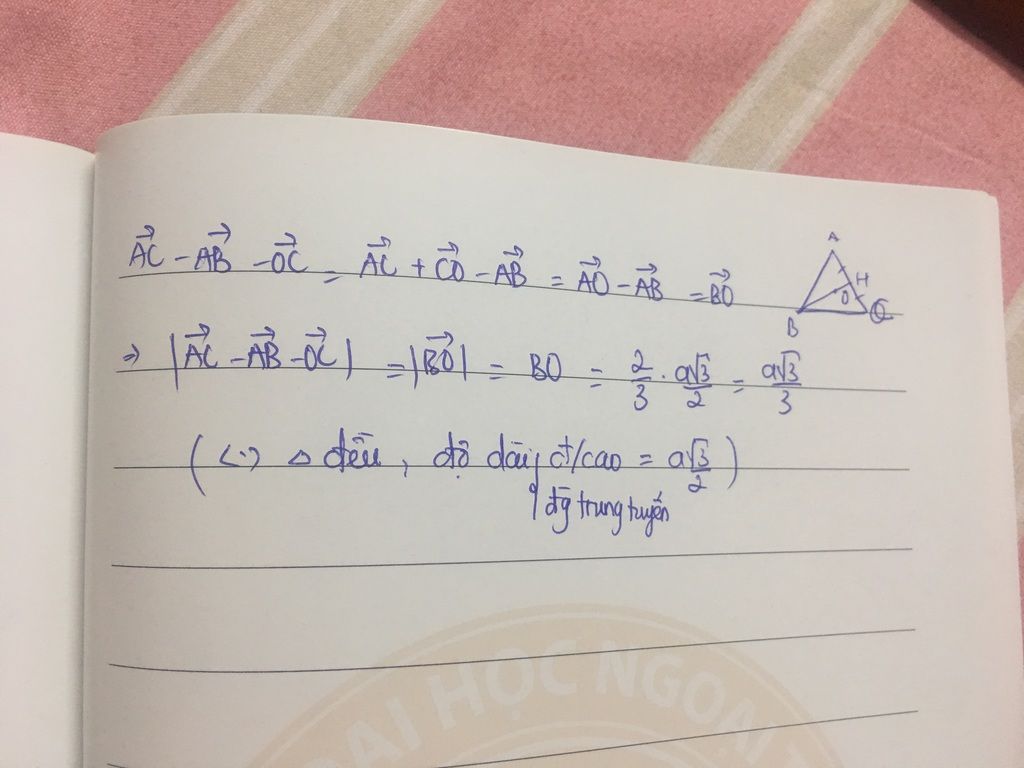 $\vec{AC} - \vec{AB} - \vec{OC} = \vec{AC} + \vec{CO} - \vec{AB} = \vec{AO} - \vec{AB} = \vec{BO}$
A
H
O
B
C
$\Rightarrow |\vec{AC} - \vec{AB} - \vec{OC}| = |\vec{BO}| = BO = \frac{2}{3} \cdot \frac{a\sqrt{3}}{2} = \frac{a\sqrt{3}}{3}$
(<·> △ đều, độ dài đ/cao = $\frac{a\sqrt{3}}{2}$)
đg trung tuyến
ĐẠI HỌC NGOẠI T